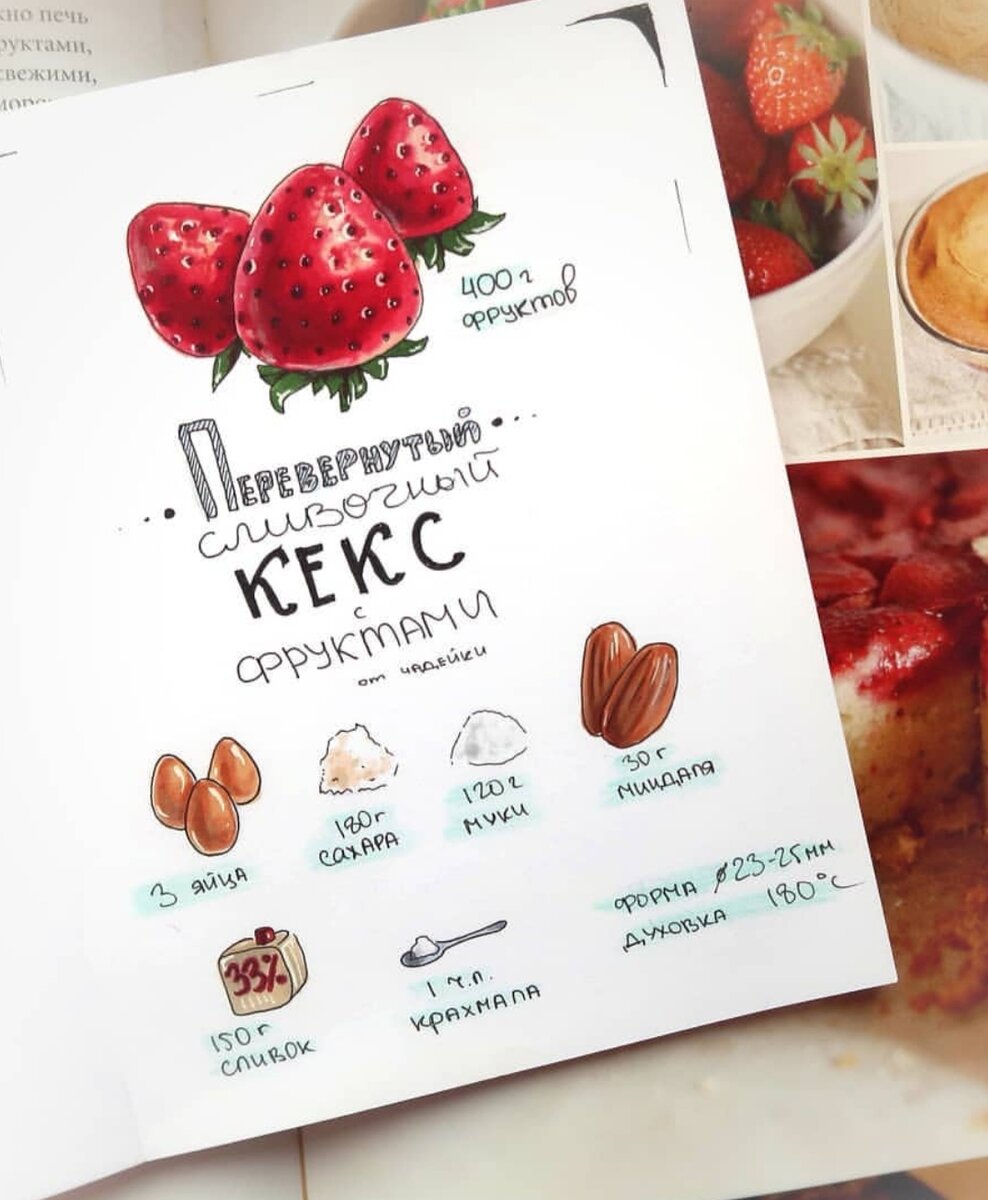 но печь
руктами,
свежими,
400 г
фруктов
Перевернутый
сливочный
кекс
с
фруктами
от чадейки
3 яйца
180 г
сахара
120 г
муки
30 г
миндаля
форма ⌀ 23-25 мм
духовка 180°C
33%
150 г
сливок
1 ч.л.
крахмала